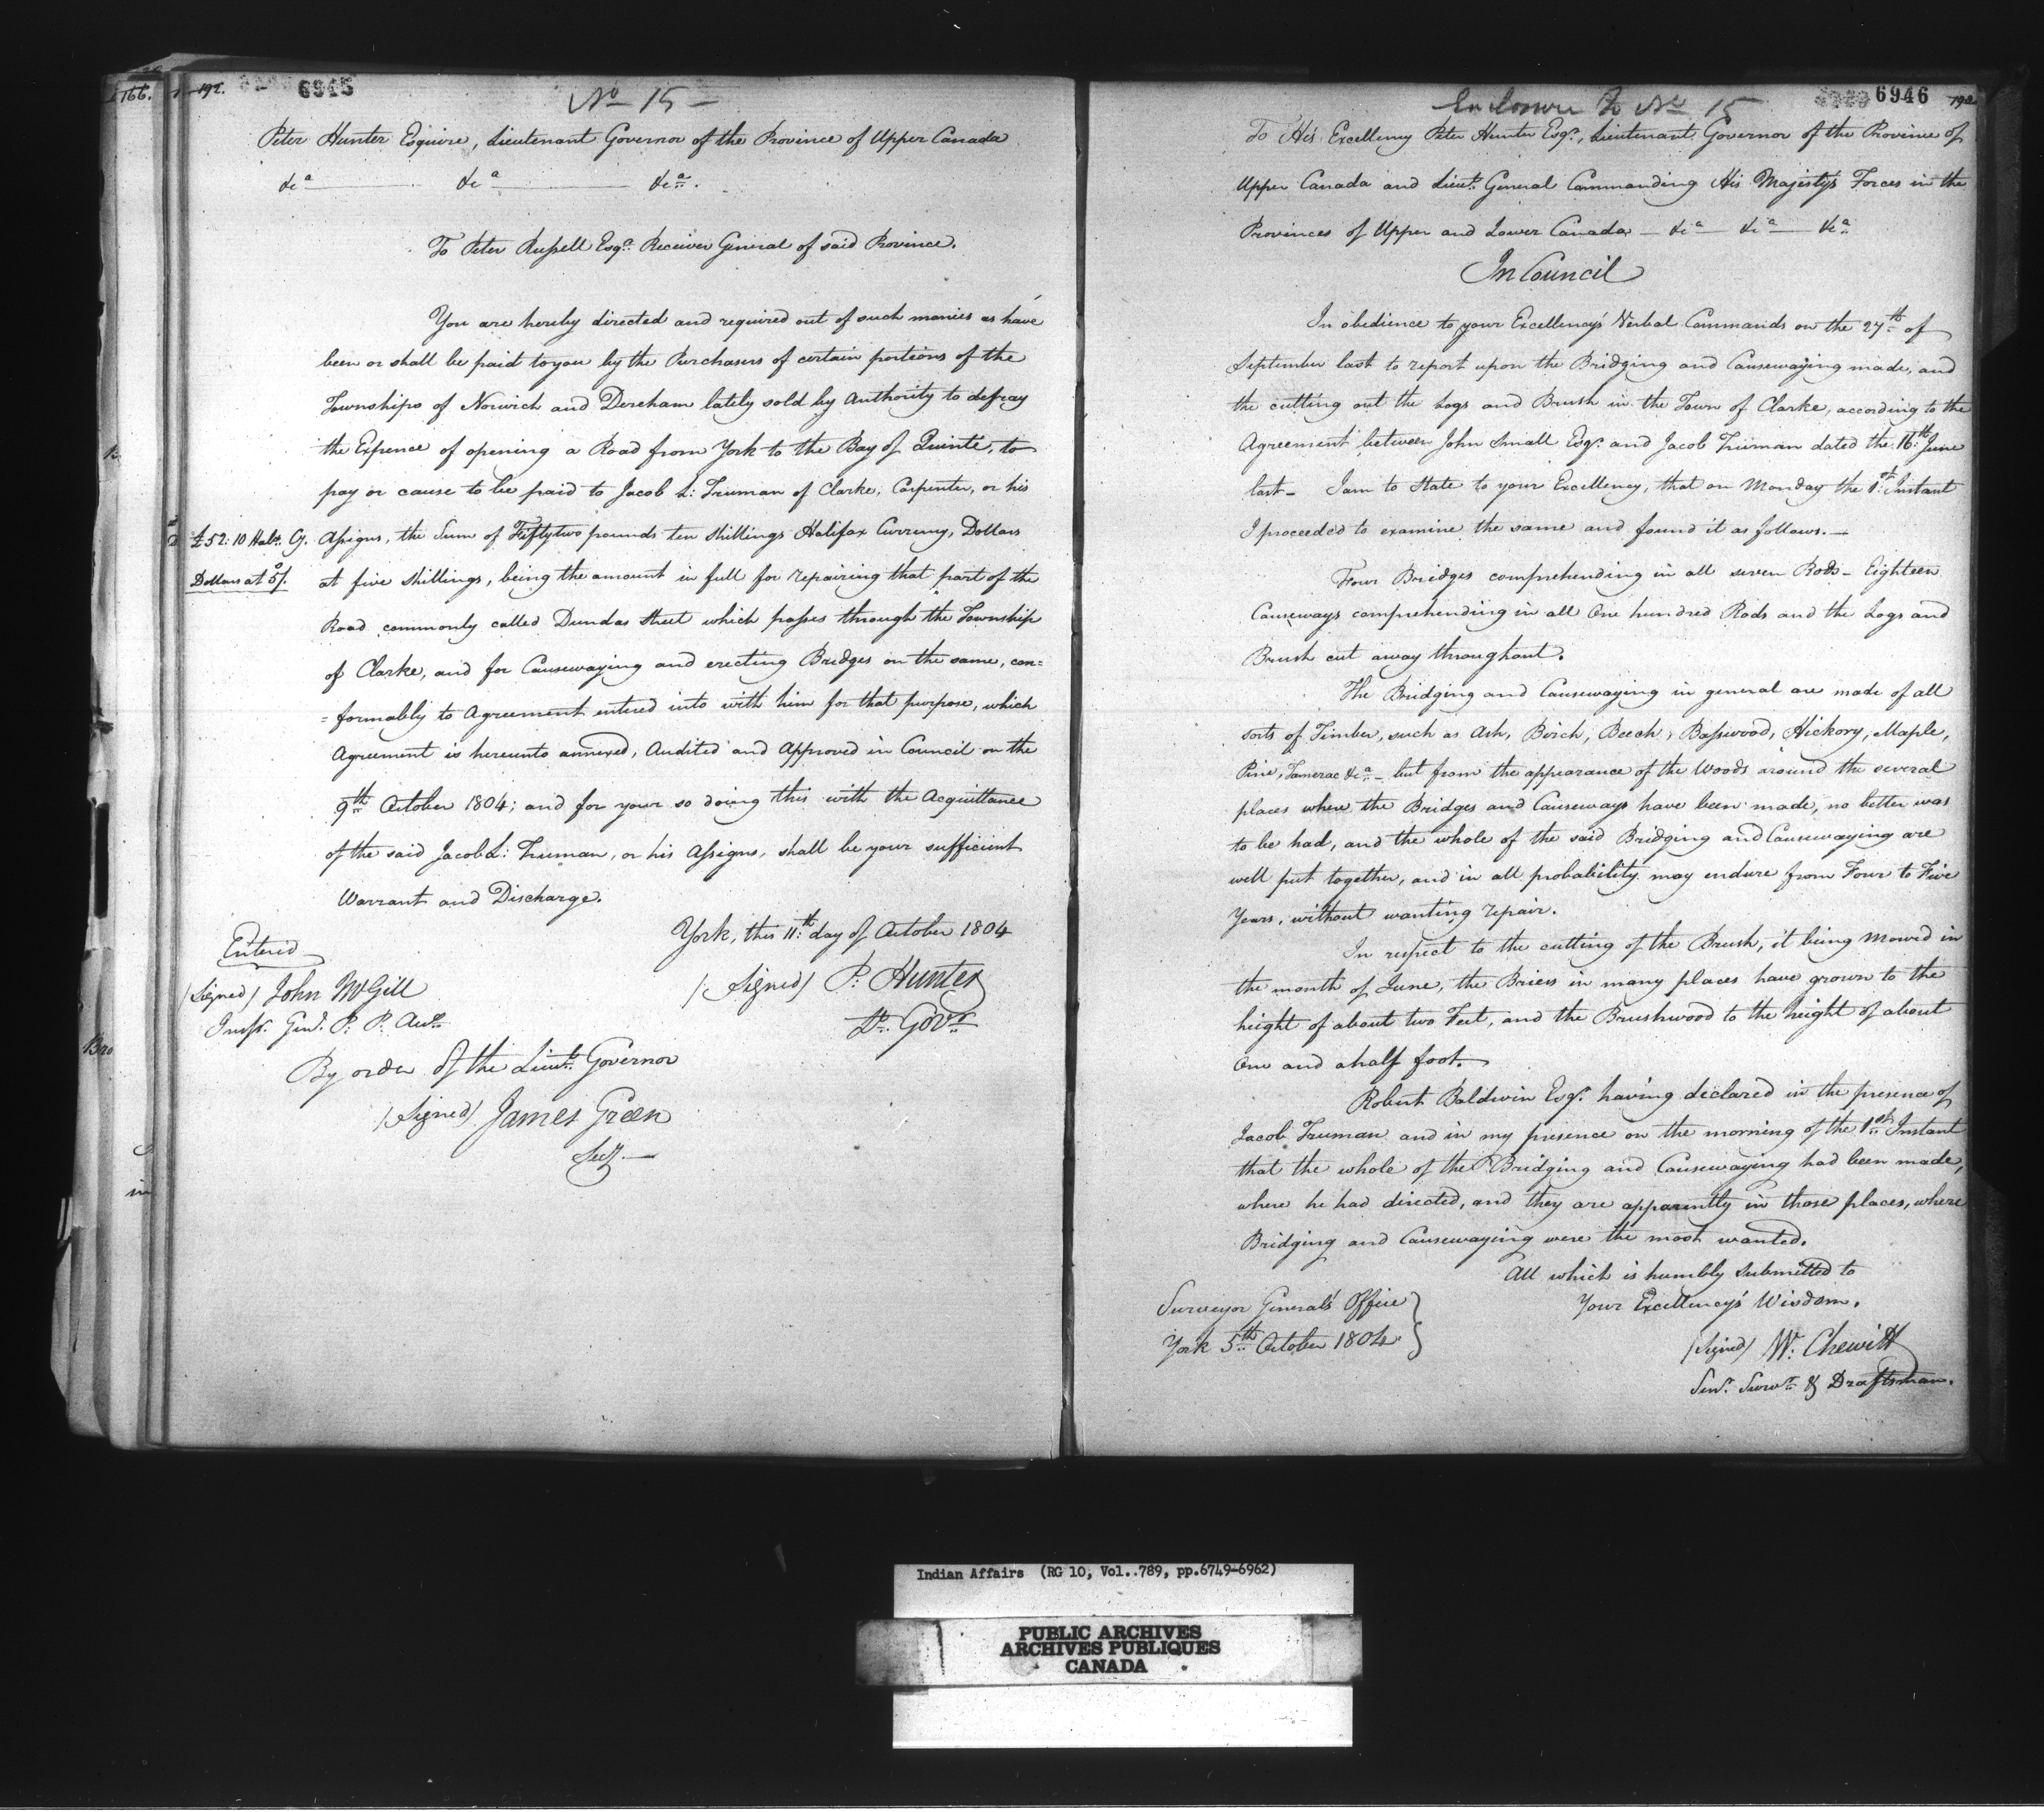 166.
192.
6945
No 15 –
Peter Hunter Esquire, Lieutenant Governor of the Province of Upper Canada
&ca &ca &ca.
To Peter Russell Esqr. Receiver General of said Province.
You are hereby directed and required out of such monies as have
been or shall be paid to you by the Purchasers of certain portions of the
Townships of Norwich and Dereham lately sold by Authority to defray
the Expence of opening a Road from York to the Bay of Quinte, to
pay or cause to be paid to Jacob L: Truman of Clarke, Carpenter, or his
£52: 10 Halx. Cy. Assigns, the Sum of Fiftytwo pounds ten Shillings Halifax Currency, Dollars
Dollars at 5/. at five Shillings, being the amount in full for repairing that part of the
Road commonly called Dundas Street which passes through the Township
of Clarke, and for Causewaying and erecting Bridges on the same, con=
=formably to Agreement entered into with him for that purpose, which
Agreement is hereunto annexed, Audited and Approved in Council on the
9th October 1804; and for your so doing this with the Acquittance
of the said Jacob L: Truman, or his Assigns, shall be your sufficient
Warrant and Discharge.
York, this 11th day of October 1804
Entered
(Signed) John McGill
Inspr. Genl. P: P: Accts
(Signed) P: Hunter
Lt. Govr.
By order of the Lieut. Governor
(Signed) James Green
Secy. —
Enclosure to No 15
6946
To His Excellency Peter Hunter Esqr., Lieutenant Governor of the Province of
Upper Canada and Lieut. General Commanding His Majesty's Forces in the
Provinces of Upper and Lower Canada — &ca — &ca — &ca
In Council
In obedience to your Excellency's Verbal Commands on the 27th of
September last to report upon the Bridging and Causewaying made, and
the cutting out the Logs and Brush in the Town of Clarke, according to the
Agreement between John Small Esqr. and Jacob Truman dated the 16th June
last – I am to State to your Excellency, that on Monday the 1st Instant
I proceeded to examine the same and found it as follows. —
Four Bridges comprehending in all seven Rods – Eighteen
Causeways comprehending in all One hundred Rods and the Logs and
Brush cut away throughout.
The Bridging and Causewaying in general are made of all
sorts of Timber, such as Ash, Birch, Beech, Basswood, Hickory, Maple,
Pine, Tamerac &ca – but from the appearance of the Woods around the several
places where the Bridges and Causeways have been made, no better was
to be had, and the whole of the said Bridging and Causewaying are
well put together, and in all probability may endure from Four to Five
Years, without wanting repair.
In respect to the cutting of the Brush, it being Mowed in
the month of June, the Briers in many places have grown to the
height of about two Feet, and the Brushwood to the height of about
One and a half foot.
Robert Baldwin Esqr. having declared in the presence of
Jacob Truman and in my presence on the morning of the 1st Instant
that the whole of the Bridging and Causewaying had been made,
where he had directed, and they are apparently in those places, where
Bridging and Causewaying were the most wanted.
All which is humbly Submitted to
Your Excellency's Wisdom.
Surveyor General's Office
York 5th October 1804
(Signed) W: Chewitt
Senr. Survr. & Draftsman.
Indian Affairs (RG 10, Vol..789, pp.6749-6962)
PUBLIC ARCHIVES
ARCHIVES PUBLIQUES
CANADA